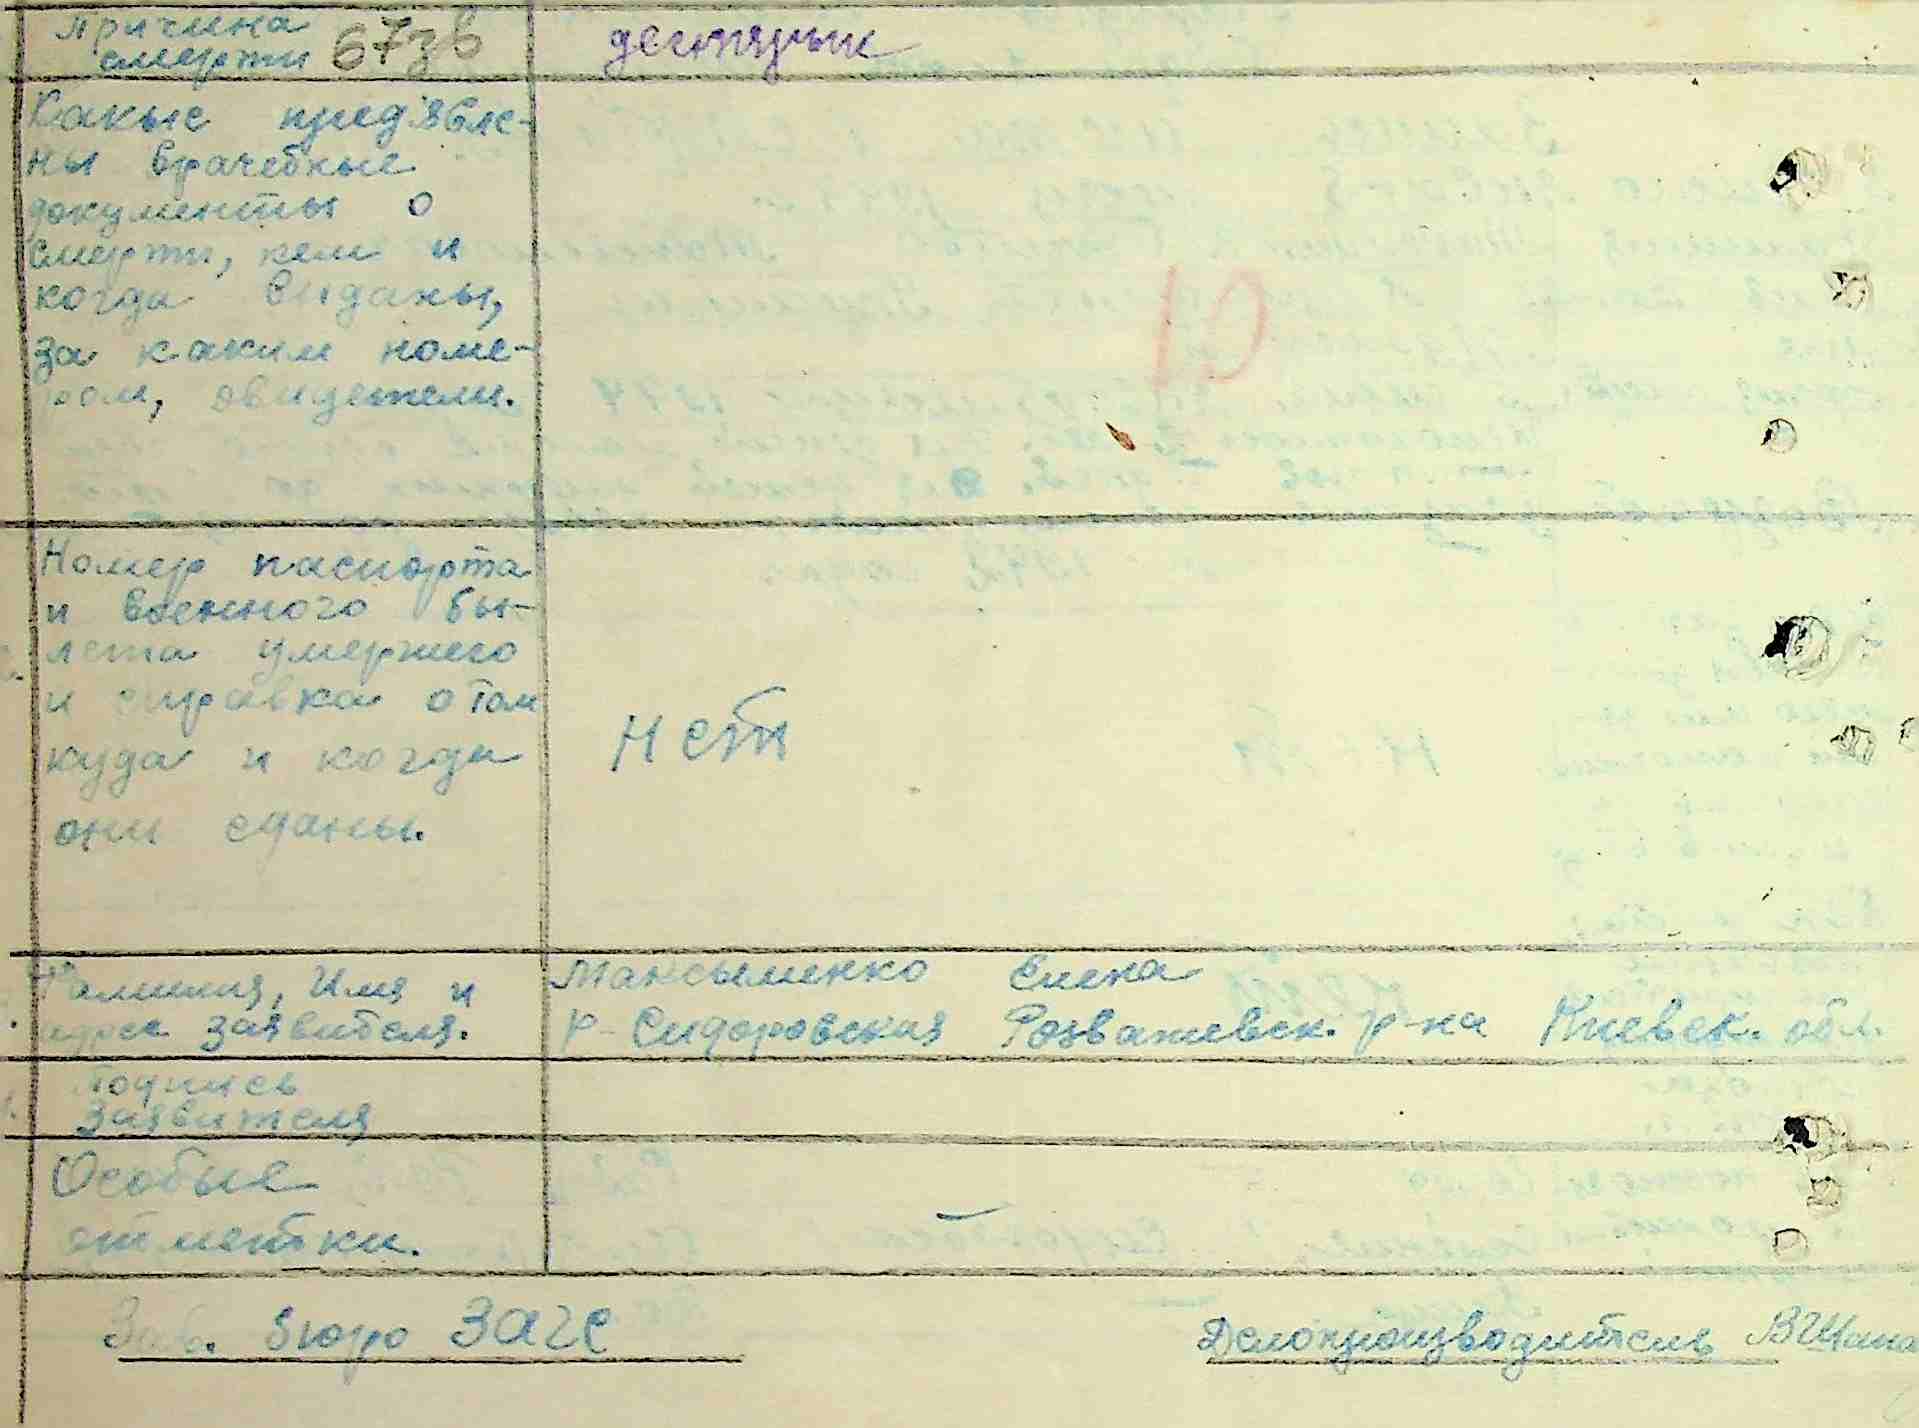 Причина
смерти 67зв
Какые предъявле-
ны врачебные
документы о
смерти, кем и
когда выданы,
за каким номе-
ром, свидетели.
10
Номер паспорта
и военного бы-
лета умершего
и справка о том
куда и когда
они сданы.
нет
Фамилия, Имя и
адрес заявителя.
Максыменко Елена
р-Сидоровская Розважевск. р-на Киевск. обл.
Подпись
Заявителя
Особые
отметки.
Зав. Бюро ЗАГС
Делопроизводитель